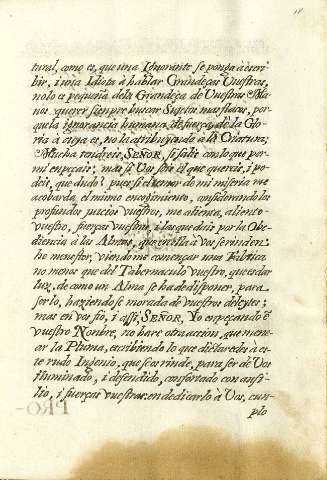 tural, como es, que una Ignorante se ponga à escri-
bir, i una Idiota à hablar Grandeças Vuestras,
no lo es pequeña de la Grandeça de Vuestra Ma-
nos querer siempre buscar Sugetos mas flacos, por-
que la ignorancia humana, de fuerça, de la Glo-
ria à ciega es, no la atribuyendo à la Criatura;
Mucha tendreis, SEÑOR, si salis con lo que por
mi enpeçais; mas si Vos sois el que quereis, i po-
deis, que dudo? pues si el temor de mi miseria me
acobarda, el mismo encogimiento, considerando los
profundos juicios vuestros, me alienta, aliento
vuestro, fuerças vuestras, i las que dais por la Obe-
diencia à las Almas, que en ella à Vos se rinden.
he menester, viendo me començar una Fabrica
no menos que del Tabernaculo vuestro, que es dar
luz, de como un Alma se ha de disponer, para
serlo, haziendose morada de vuestros deleytes;
mas en vos fio, i assi, SEÑOR, Yo enpeçando en
vuestro Nonbre, no harè otra accion, que mene-
ar la Pluma, escribiendo lo que dictaredes à es-
te rudo Ingenio, que se a rinde, para ser de Vos
illuminado, i defendido, confortado con auxi-
lio, i fuerças vuestras: en dedicarlo à Vos, cun-
plo